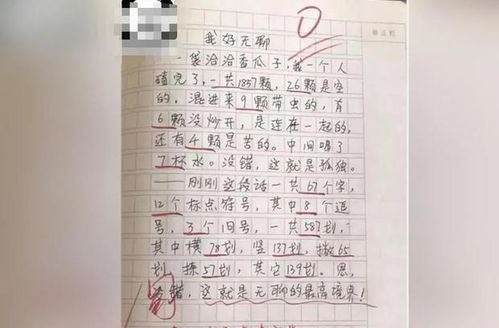 我好无聊
一袋洽洽香瓜子，我一个人
嗑完了，一共1857颗，26颗是空
的，混进来9颗带虫的，有
6颗没炒开，是连在一起的，
还有4颗是苦的。中间喝了
7杯水。没错，这就是孤独。
——刚刚这段话一共67个字，
12个标点符号，其中8个逗
号，3个句号，一共587划，
其中横78划，竖137划，撇65
划，捺57划，其它139划。恩，
没错，这就是无聊的最高境界！